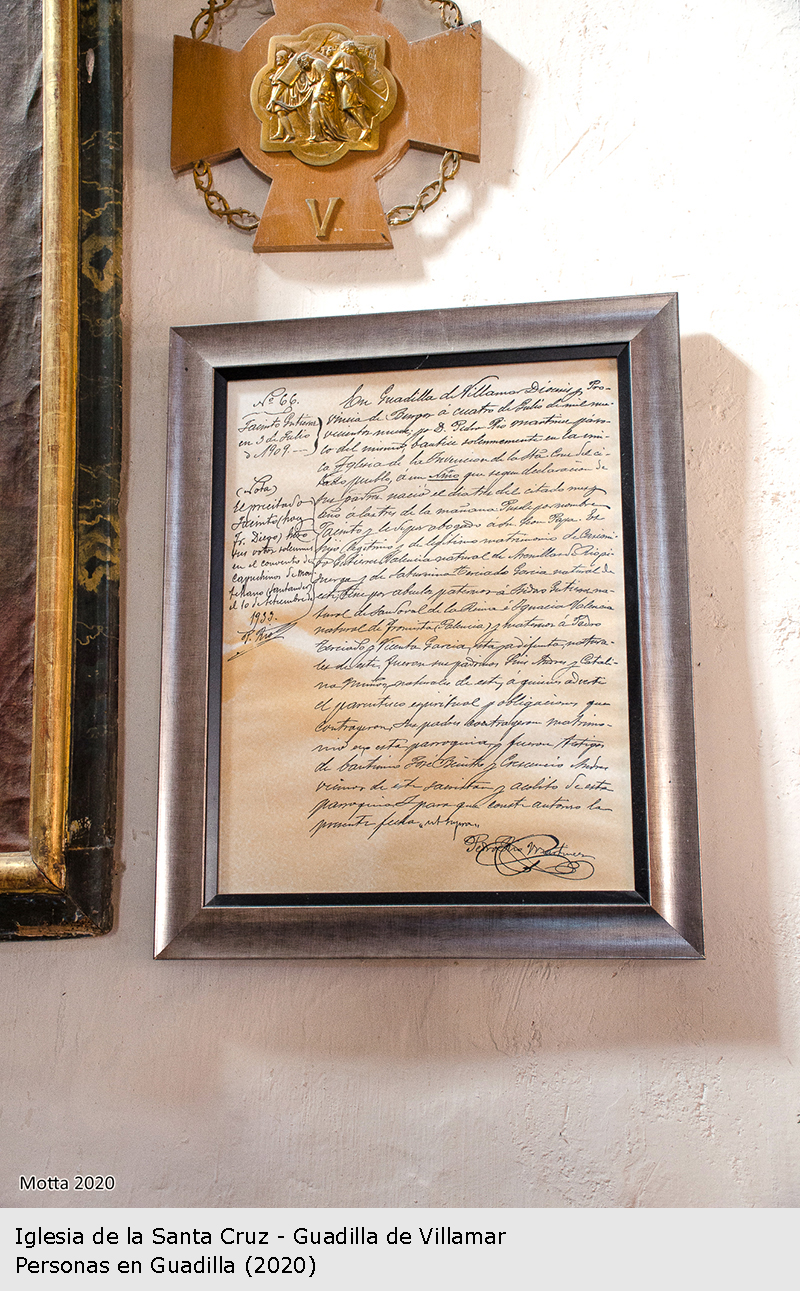 V
Nº 66.
Jacinto Gutierrez
en 3 de Julio
de 1909.
(Nota)
El precitado
Jacinto (hoy
Fr. Diego) hizo
sus votos solemnes
en el convento de
capuchinos de Mon-
tehano (Santander)
el 10 de Setiembre de
1933.
P. Rio
En Guadilla de Villamar Diócesis y Pro-
vincia de Burgos á cuatro de Julio de mil no-
vecientos nueve; yo D. Pedro Rio Martinez párro-
co del mismo, bauticé solemnemente en la úni-
ca Iglesia de la Invencion de la Sta. Cruz del ci-
tado pueblo, á un Niño que segun declaracion de
su padre nació el dia tres del citado mes y
año á las tres de la mañana. Púsele por nombre
Jacinto y le dí por abogado a Sn. Leon Papa. Es
hijo legítimo y de legítimo matrimonio de
Gutierrez Valencia natural de
y de Saturnina Terciado Garcia natural de
esta; tiene por abuelos paternos á Isidro Gutierrez na-
tural de Sandoval de la Reina é Ignacia Valencia
natural de Fromista (Palencia) y maternos a Pedro
Terciado y Vicenta Garcia, esta ya difunta, natura-
les de esta, fueron sus padrinos Luis Andres y Catali-
na Muñoz, naturales de esta, á quienes advertí
el parentesco espiritual y obligaciones que
contrageron. Sus padres contrageron matrimo-
nio en esta parroquia, y fueron testigos
de bautismo José Benito y Crescencio Andres
vecinos de esta sacristan y acolito de esta
parroquia. Y para que conste autorizo la
presente fecha ut supra.
Pedro Rio Martinez
Motta 2020
Iglesia de la Santa Cruz - Guadilla de Villamar
Personas en Guadilla (2020)